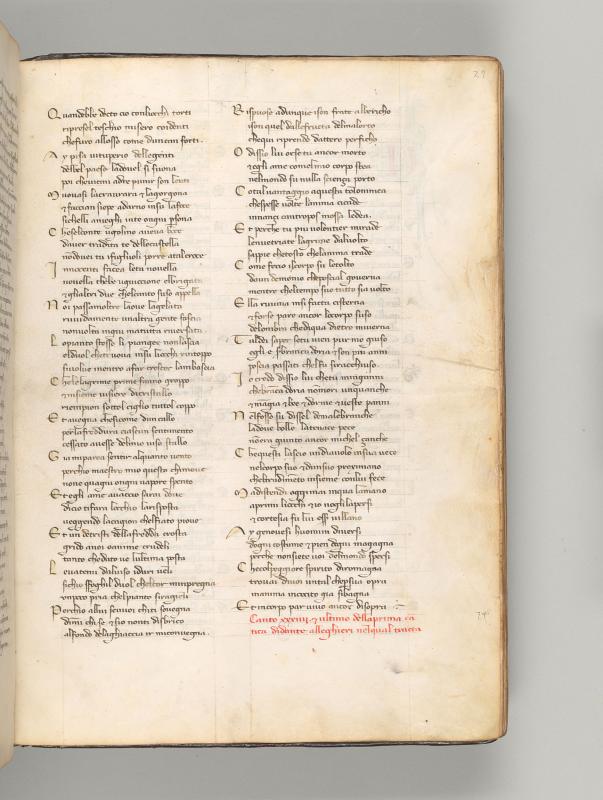 29
Quandebbe decto cio conliocchi torti
riprosel teschio misero coidenti
chefuro allosso come duncan forti.
Ay pisa vituperio dellegenti
delbel paese ladovel si suona
poi cheivicini adte punir son lenti
Muovasi lacravara & lagorgona
& faccian siepe adarno insu lafoce
sichelli anieghi inte ongni psona
Cheselconte ugolino aveva boce
daver tradita te dellecastella
nodovei tu ifigliuoli porre atalcroce
Innocenti facea leta novella
novella thebe uguiccione elbrigata
& glialtri due chelcanto suso appella
Noi passamoltre laove lagelata
ruvidamente unaltra gente fascia
nonvolta ingiu matutta riversata
Lopianto stesso li pianger nonlascia
elduol chetruova insu liocchi rintoppo
sivolve inentro afar crescer lambascia
Chelelagrime prime fanno groppo
& sicome visiere dicristallo
riempion sottol ciglio tuttol coppo
Et avegna chesicome duncallo
perlafreddura ciascun sentimento
cessato avesse delmio viso stallo
Gia miparea sentir alquanto vento
perchio maestro mio questo chimove
none quagiu ongni vapore spento
Et egli ame avaccio sarai dove
dicio tifara locchio larisposta
veggendo lacagion chelfiato piove
Et un detristi dellafredda crosta
grido anoi oanime crudeli
tanto chedatove lultima posta
Levatemi dalviso iduri veli
sichio sfoghil duol cheltor mimpregna
unpoco pria chelpianto siraggieli
Perchio allui sevuoi chiti sovegna
dimi chi se & sio nonti disbrico
alfondo delaghiaccia ir miconvegna.
Rispuose adunque ison frate alberigo
ison quel dallefructa delmalorto
chequi riprendo dattero perficho
O dissio lui orsetu ancor morto
& egli ame comelmio corpo stea
nelmondo su nulla scienza porto
Cotal vantaggio aquesta tolommea
chespesse volte lanima cicade
innanzi cantropos mossa ledea.
Et perche tu piu volontier mirade
lenvetriate lagrime dalvolto
sappie chetosto chelanima trade
Come fecio ilcorpo su letolto
daun demonio cheposcial governa
mentre cheltempo suo tutto sia volto
Ella ruvina insi facta cisterna
& forse pare ancor locorpo suso
delombra chediqua dietro mi verna
Tu ldei saper setu vien pur mo giuso
egli e sbranca doria & son piu anni
poscia passati chelfu siracchiuso.
Io credo dissio lui chetu minganni
chebranca doria nonmori unquanche
& mangia & bee & dorme & veste panni
Nelfosso su dissel demalebranche
ladove bolle latenace pece
nonera giunto ancor michel çanche
Chequesti lascio undiavolo insua vece
nelcorpo suo & dunsuo proximano
cheltradimento insieme conlui fece
Madistendi oggimai inqua lamano
aprimi liocchi & io nogliapersi
& cortesia fu lui esser villano
Ay genovesi huomini diversi
dogni costume & pien dogni magagna
perche nonsiete voi delmondo spersi
Checolpeggiore spirito diromagna
trovai divoi untal chepsua opra
inanima incocito gia sibagna
Et incorpo par vivo ancor disopra
Canto xxxiiij. & ultimo dellaprima can
tica didante alleghieri nelqual tracta